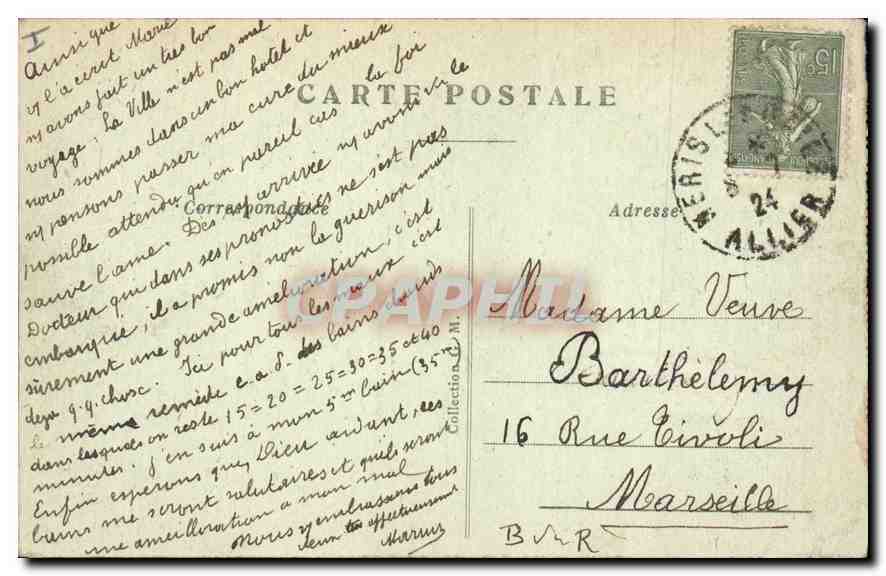 I
Ainsi que
v/ l'a écrit Marie
n/ avons fait un très bon
voyage; La Ville n'est pas mal
nous sommes dans un bon hotel et
n/ pensons passer ma cure du mieux
possible attendu qu'en pareil cas la foi
sauve l'ame. Dès n/ arrivée n/ avons vu le
Docteur qui dans ses pronostics ne s'est pas
embarqué, il a promis non la guérison mais
sûrement une grande amélioration, c'est
déjà q.q. chose. Ici pour tous les maux c'est
le même remède c.a.d. des bains chauds
dans lesquels on reste 15=20=25=30=35 et 40
minutes. J'en suis à mon 5me bain (35m)
Enfin esperons que, Dieu aidant, ces
bains me seront salutaires et qu'ils seront
une ameilloration a mon mal
Nous v/ embrassons tous
deux affectueusement
Marius
CARTE POSTALE
Correspondance
Adresse
Collection G. M.
15c
NERIS LES BAINS
24
ALLIER
CPAPHIL
Madame Veuve
Barthélemy
16 Rue Tivoli
Marseille
B du R